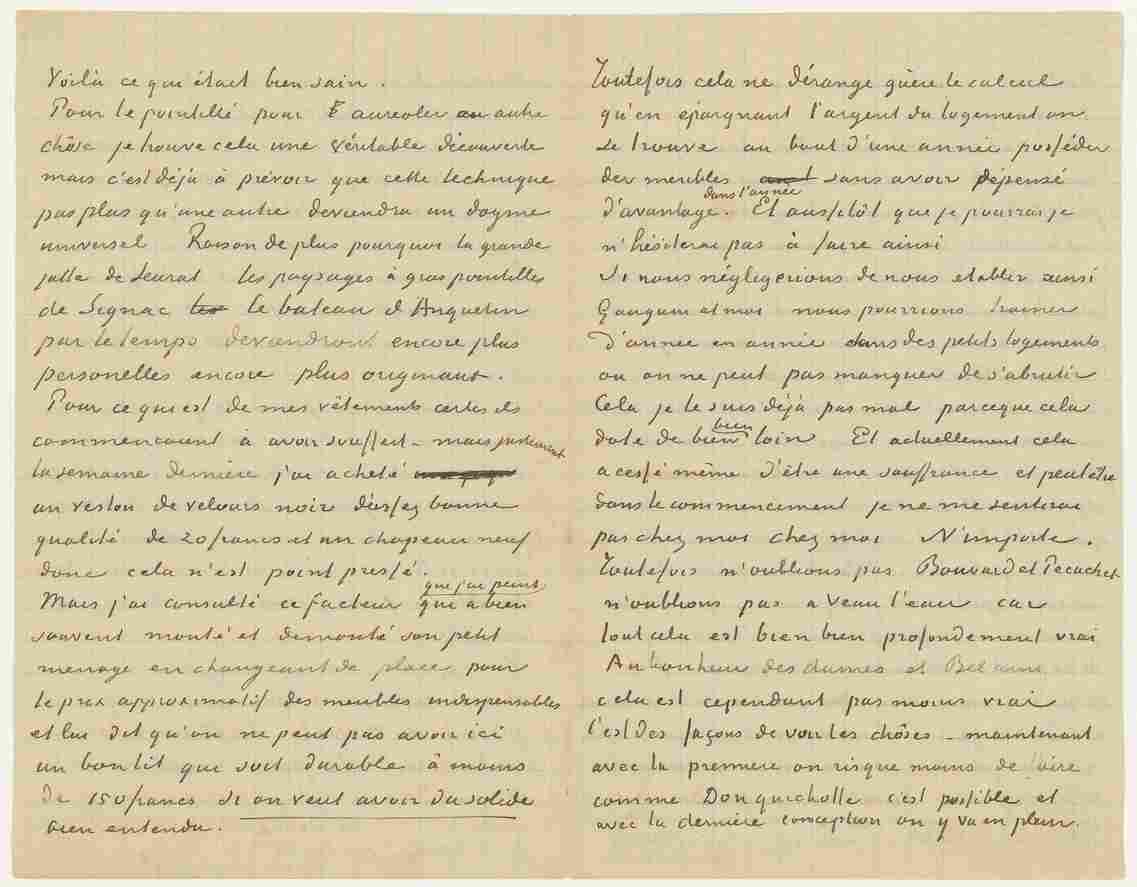 Voilà ce qui était bien sain.
Pour le pointillé pour aureoler ou autre
chôse je trouve cela une véritable découverte
mais c'est déjà à prévoir que cette technique
pas plus qu'une autre deviendra un dogme
universel Raison de plus pourquoi la grande
jatte de Seurat les paysages à gros pointillés
de Signac le bateau d'Anquetin
par le temps deviendront encore plus
personelles encore plus originaux.
Pour ce qui est de mes vêtements certes ils
commencaient à avoir souffert – mais justement
la semaine dernière j'ai acheté
un veston de velours noir d'assez bonne
qualité de 20 francs et un chapeau neuf
donc cela n'est point pressé.
Mais j'ai consulté ce facteur que j'ai peint qui a bien
souvent monté et demonté son petit
menage en changeant de place pour
le prix approximatif des meubles indispensables
et lui dit qu'on ne peut pas avoir ici
un bon lit qui soit durable à moins
de 150 francs si on veut avoir du solide
bien entendu.
Toutefois cela ne dérange guère le calcul
qu'en épargnant l'argent du logement on
se trouve au bout d'une année posséder
des meubles sans avoir dépensé
d'avantage dans l'année. Et aussitôt que je pourrai je
n'hésiterai pas à faire ainsi
Si nous négligerions de nous etablir ainsi
Gauguin et moi nous pourrions trainer
d'année en année dans des petits logements
où on ne peut pas manquer de s'abrutir
Cela je le suis déjà pas mal parceque cela
date de bien bien loin Et actuellement cela
a cessé même d'être une souffrance et peut être
dans le commencement je ne me sentirai
pas chez moi chez moi N'importe.
Toutefois n'oublions pas Bouvard et Pecuchet
n'oublions pas a veau l'eau car
tout cela est bien bien profondement vrai
Au bonheur des dames et Bel ami
cela est cependant pas moins vrai
C'est des façons de voir les chôses – maintenant
avec la première on risque moins de faire
comme Don quichotte c'est possible et
avec la dernière conception on y va en plein.